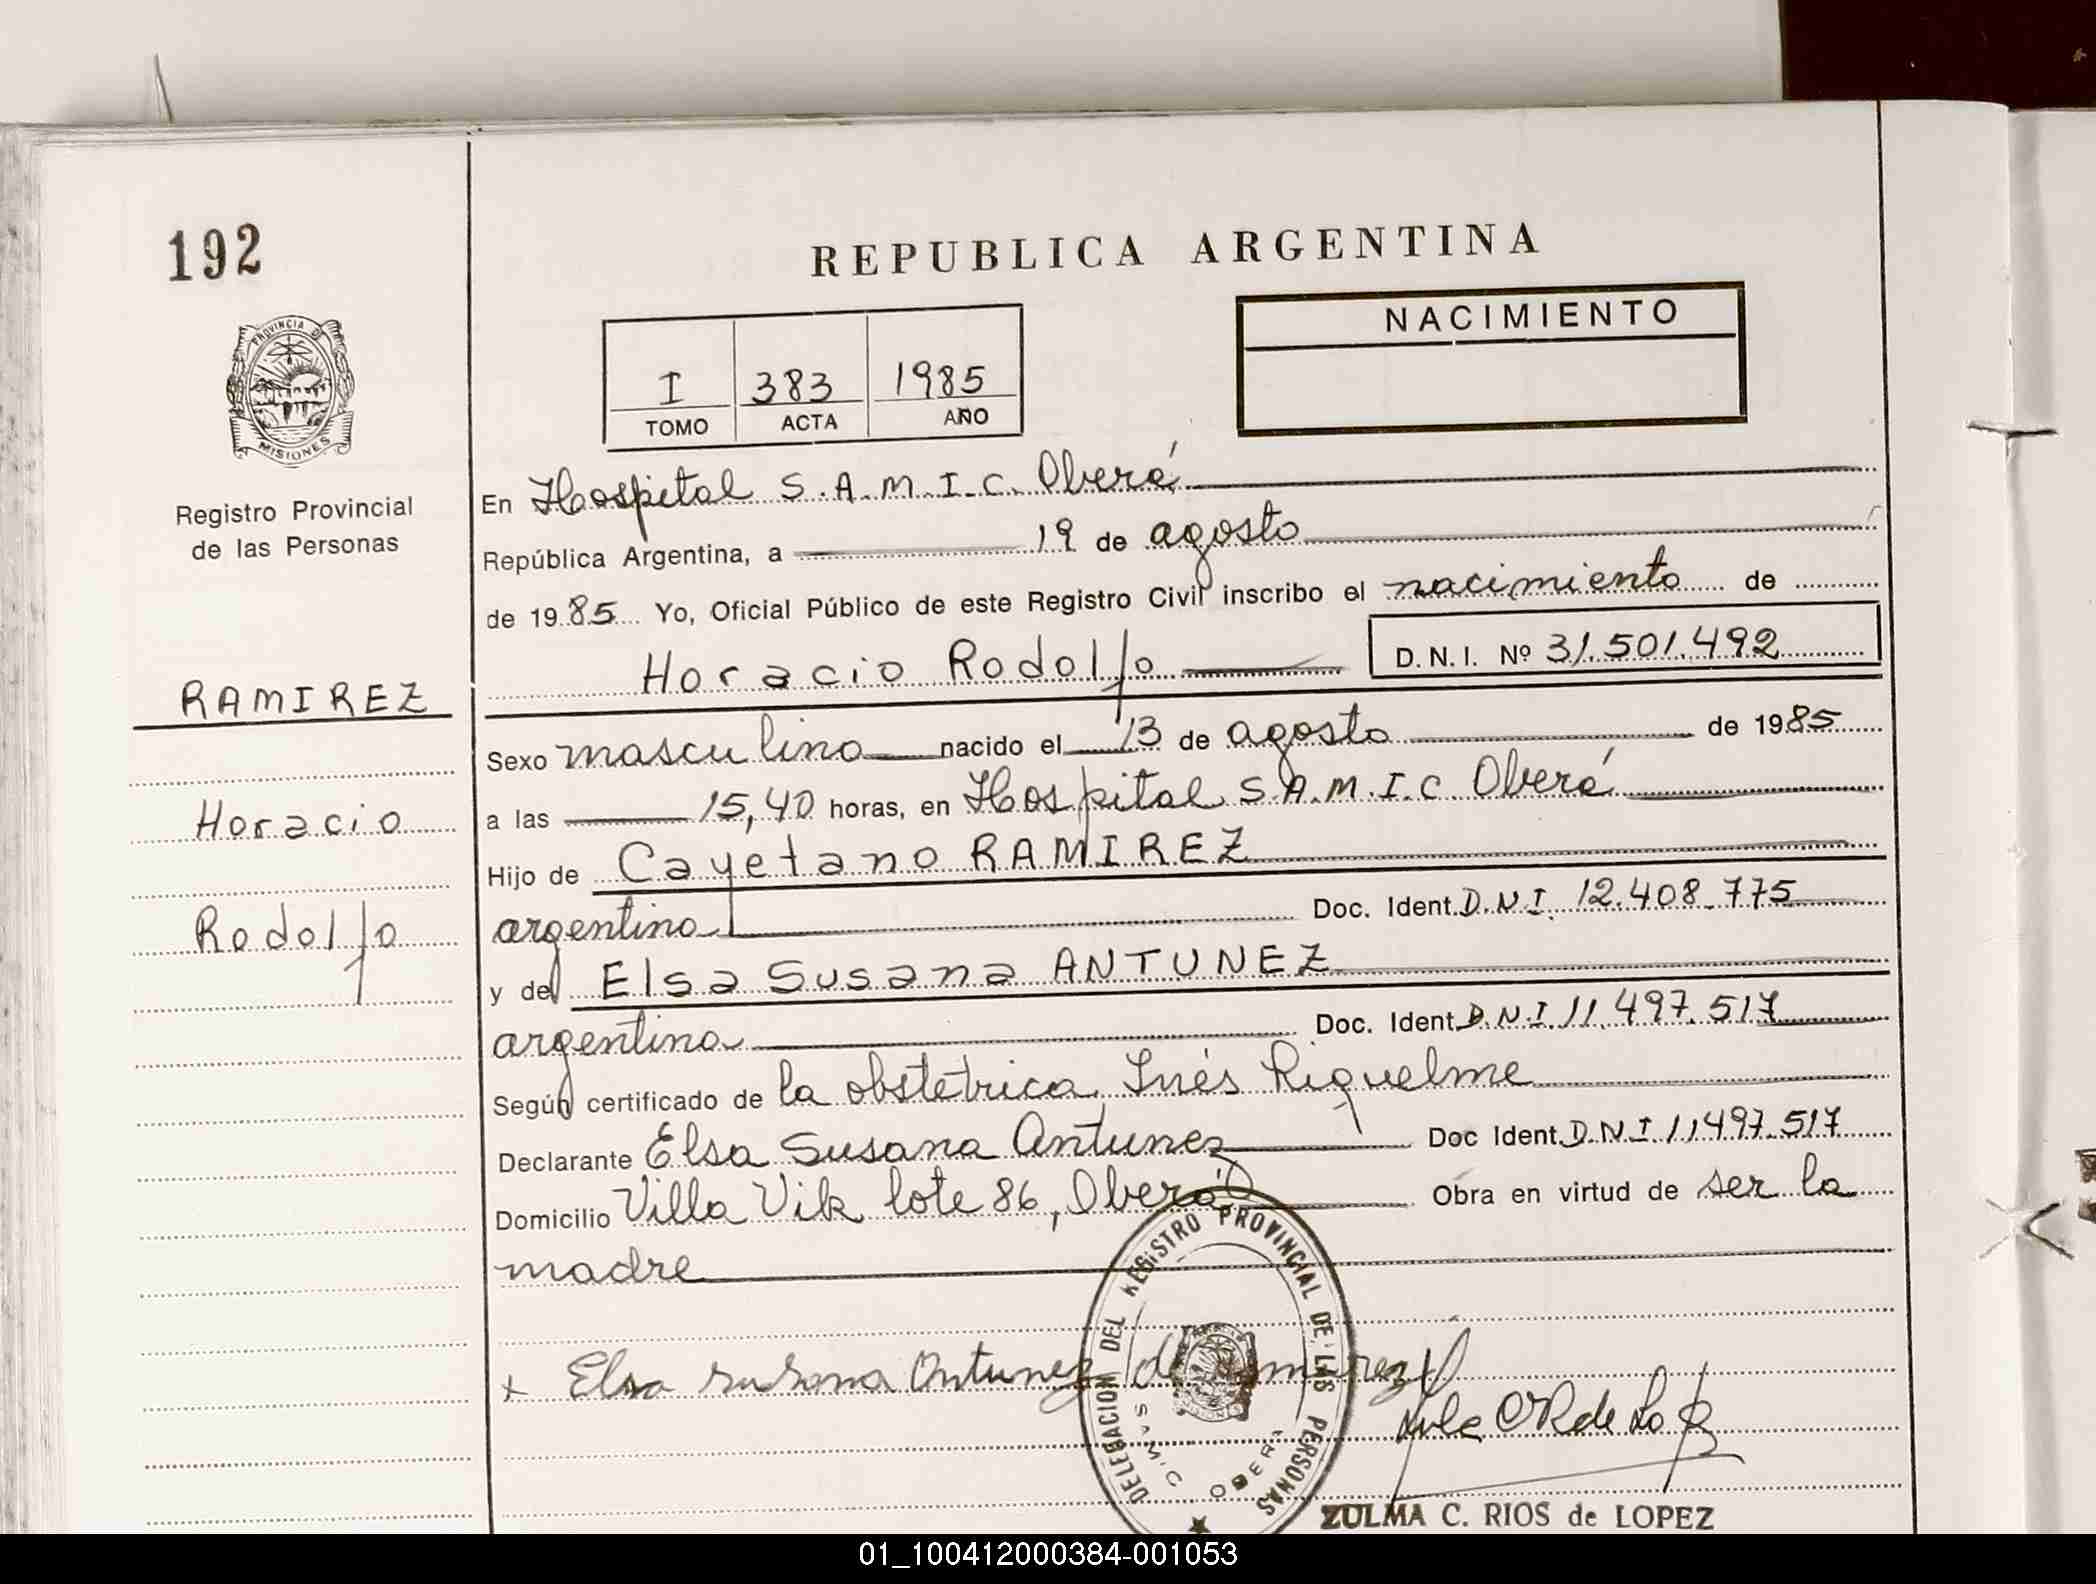 192
REPUBLICA ARGENTINA
NACIMIENTO
I 383 1985
TOMO ACTA AÑO
PROVINCIA DE
MISIONES
Registro Provincial
de las Personas
RAMIREZ
Horacio
Rodolfo
En Hospital S.A.M.I.C. Oberá
República Argentina, a 19 de agosto
de 1985 Yo, Oficial Público de este Registro Civil inscribo el nacimiento de
Horacio Rodolfo D.N.I. Nº 31.501.492
Sexo masculino nacido el 13 de agosto de 1985
a las 15,40 horas, en Hospital S.A.M.I.C. Oberá
Hijo de Cayetano RAMIREZ
argentino Doc. Ident. D.N.I. 12.408.775
y de Elsa Susana ANTUNEZ
argentina Doc. Ident. D.N.I. 11.497.517
Según certificado de la obstetrica Inés Riquelme
Declarante Elsa Susana Antunez Doc Ident. D.N.I 11.497.517
Domicilio Villa Vik lote 86, Oberá Obra en virtud de ser la
madre
x Elsa Susana Antunez de Ramirez
DELEGACION DEL REGISTRO PROVINCIAL DE LAS PERSONAS
SAMIC OBERA
ZULMA C. RIOS de LOPEZ
01_100412000384-001053